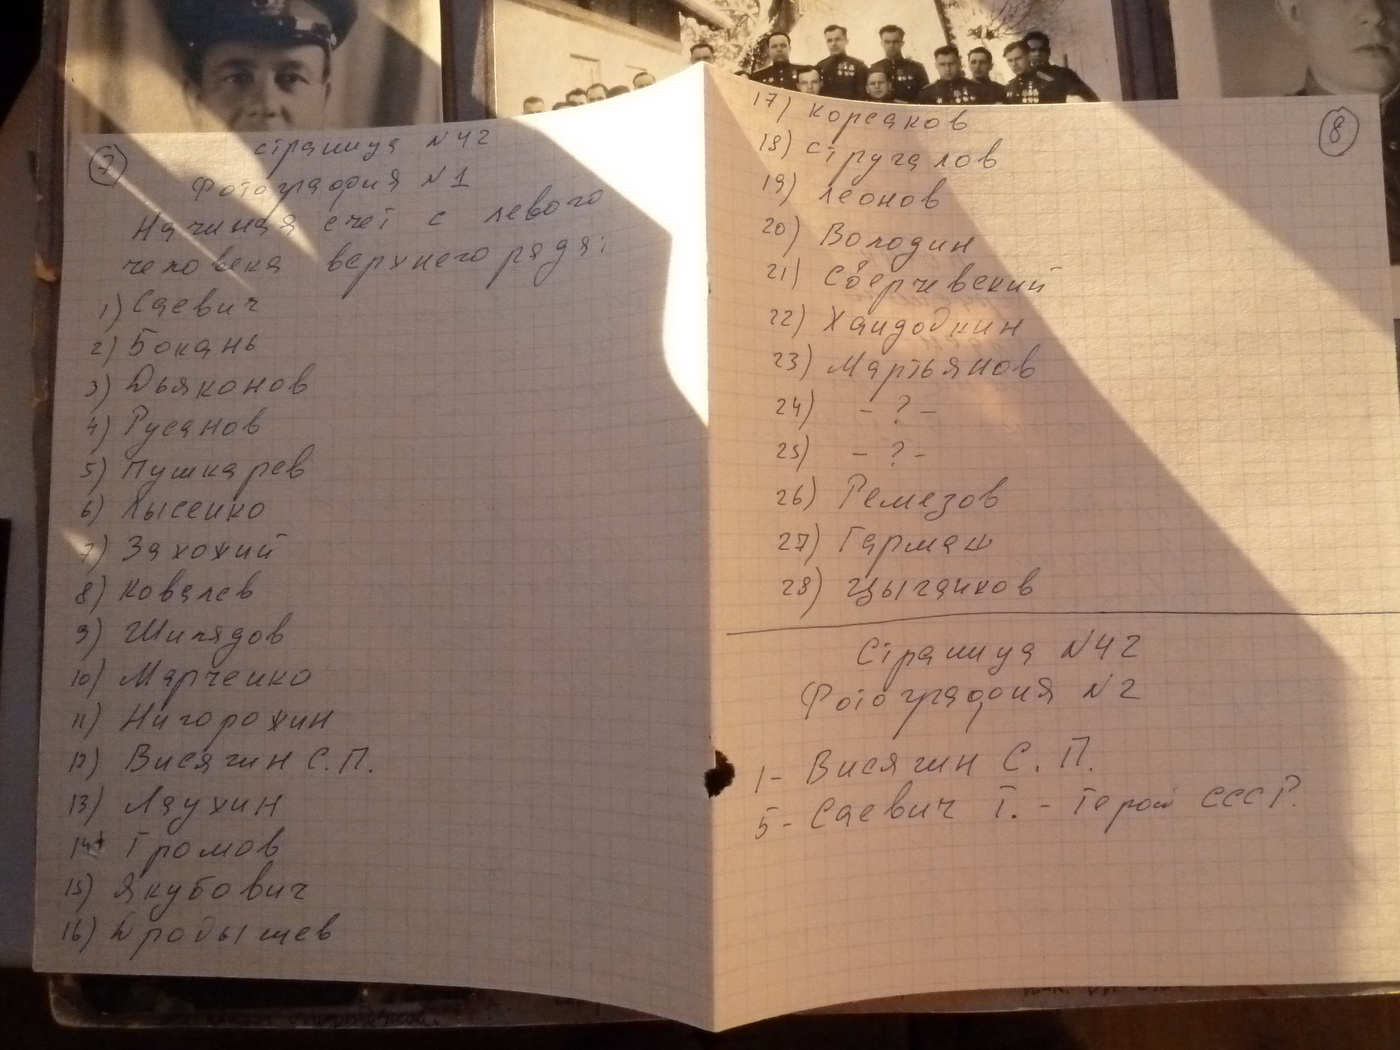 7
страница N42
Фотография N1
Начиная счет с левого
человека верхнего ряда:
1) Саевич
2) Бокань
3) Дьяконов
4) Русанов
5) Пушкарев
6) Лысенко
7) Захожий
8) Ковалев
9) Шилядов
10) Марченко
11) Нигорожин
12) Висягин С.П.
13) Лаухин
14) Громов
15) Якубович
16) Дробышев
8
17) Корсаков
18) Стругалов
19) Леонов
20) Володин
21) Сверчевский
22) Хандобкин
23) Мартьянов
24) - ? -
25) - ? -
26) Ремезов
27) Гармаш
28) Цыганков
Страница N42
Фотография N2
1- Висягин С. П.
5- Саевич Т. - Герой СССР.